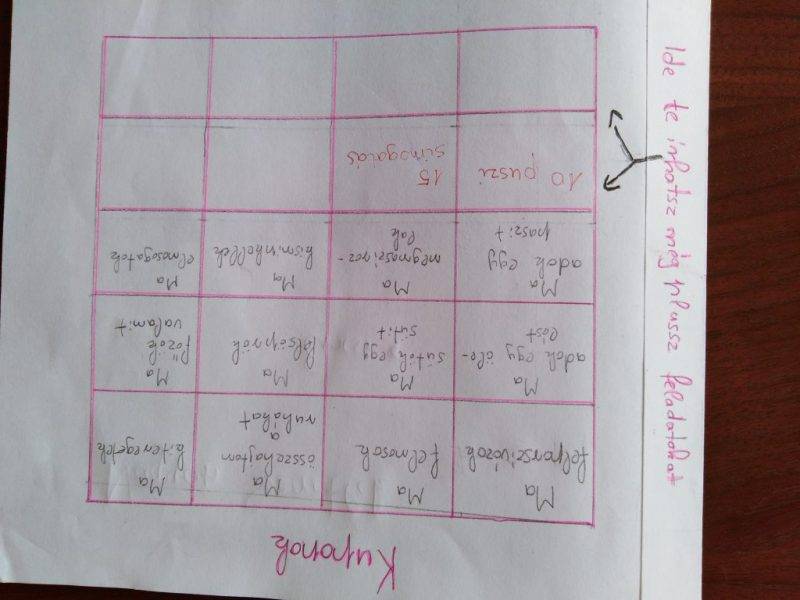 Kuponok
Ma
felporszívózok
Ma
felmosok
Ma
összehajtom
a
ruhákat
Ma
kiteregetek
Ma
adok egy öle-
lést
Ma
sütök egy
sütit
Ma
felsöprök
Ma
főzök
valamit
Ma
adok egy
puszit
Ma
megmaszíroz-
lak
Ma
kisminkellek
Ma
elmosogatok
10 puszi
15
simogatás
Ide te írhatsz még plussz feladatokat